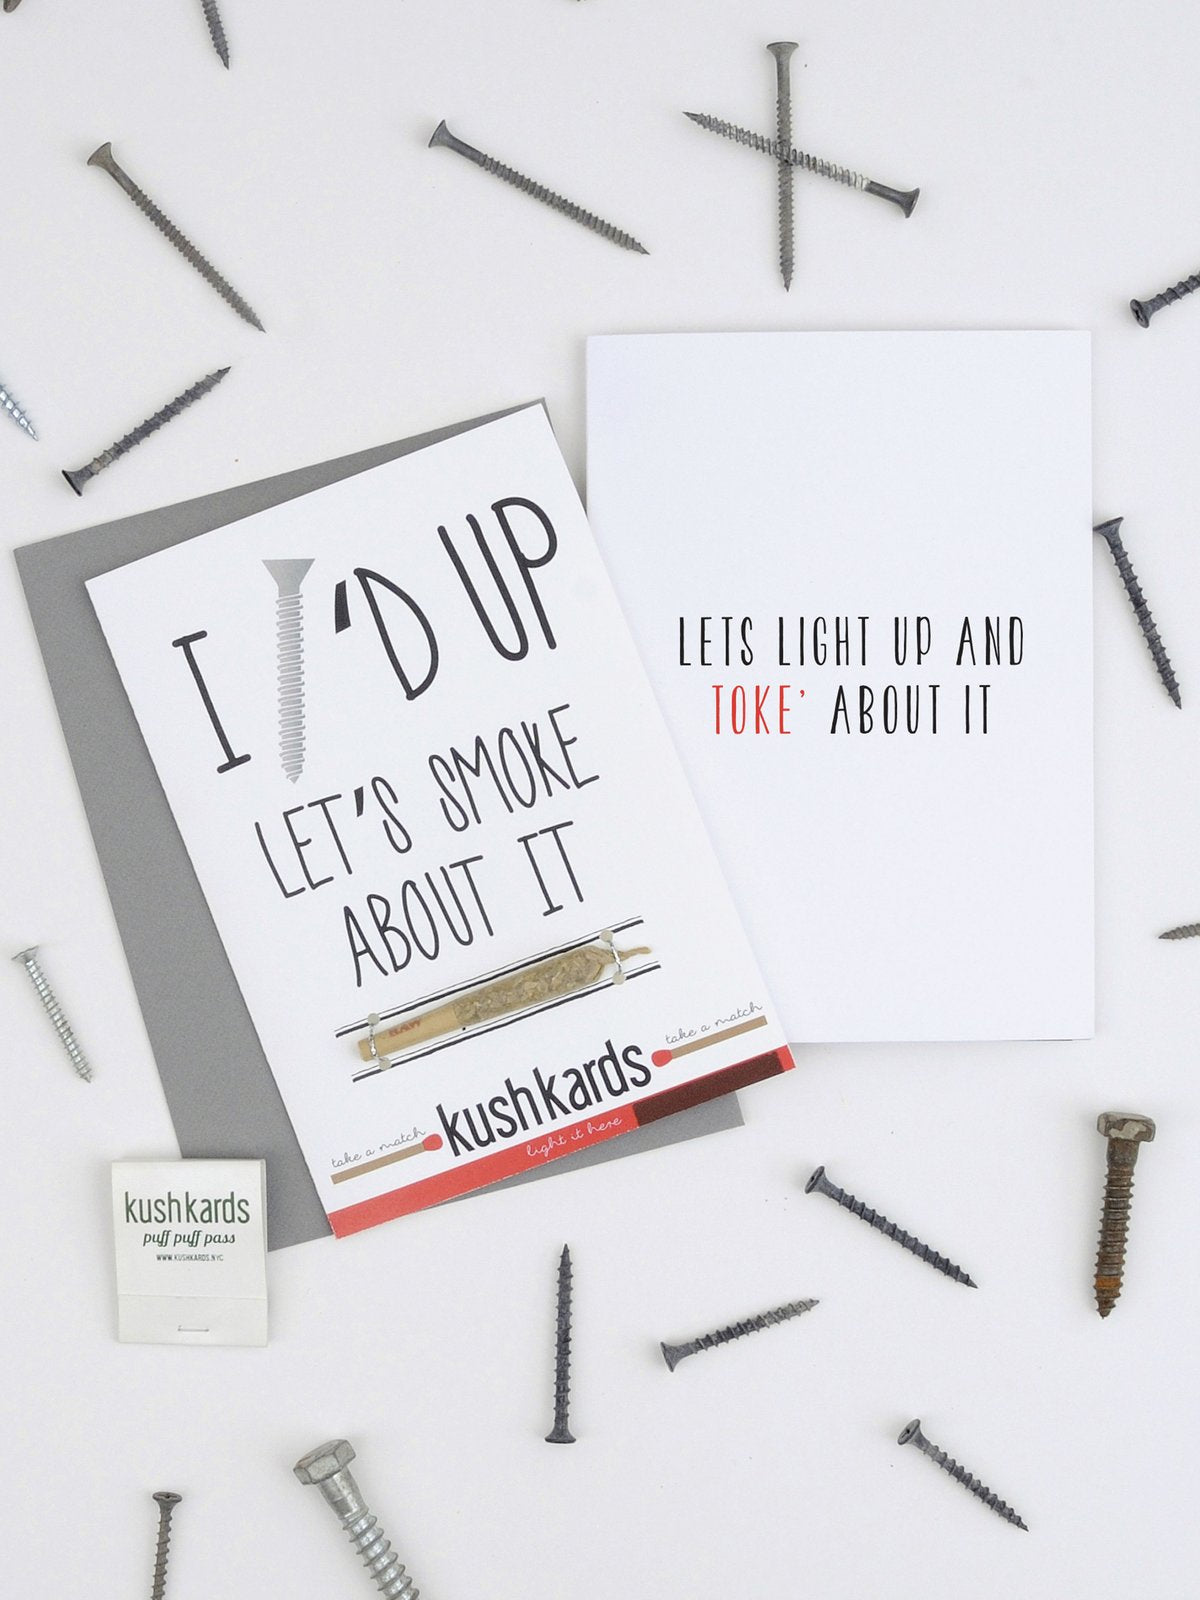 I 'D UP
LET'S SMOKE
ABOUT IT
RAW
take a match
kushkards
take a match
light it here
LETS LIGHT UP AND
TOKE' ABOUT IT
kushkards
puff puff pass
WWW.KUSHKARDS.NYC